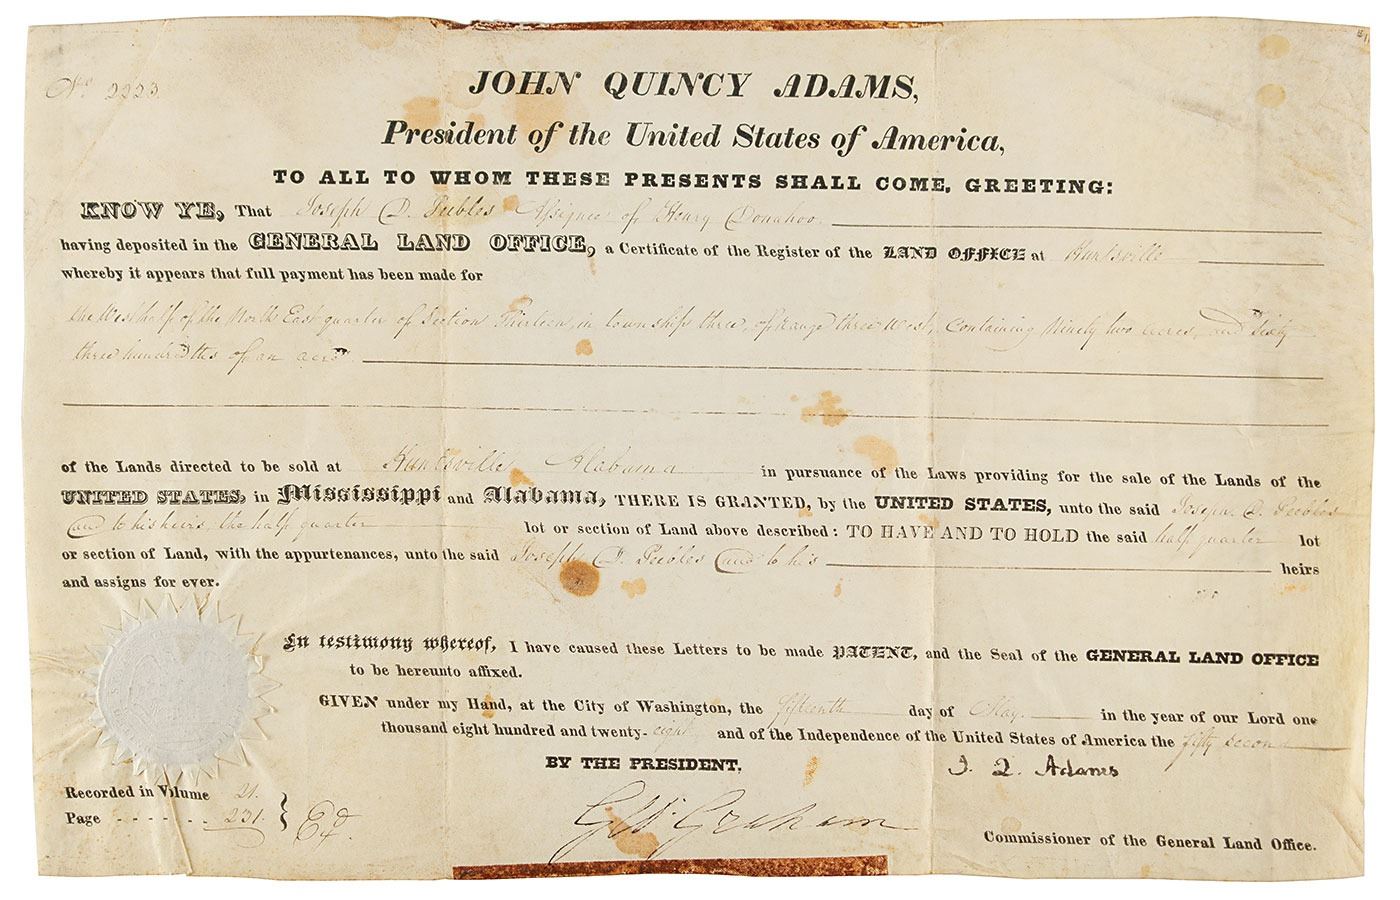 No. 2223
JOHN QUINCY ADAMS,
President of the United States of America,
TO ALL TO WHOM THESE PRESENTS SHALL COME, GREETING:
KNOW YE, That Joseph D. Peebles Assignee of Henry Donahoo
having deposited in the GENERAL LAND OFFICE, a Certificate of the Register of the LAND OFFICE at Huntsville
whereby it appears that full payment has been made for
the West half of the North East quarter of Section Thirteen, in township three, of range three West, Containing Ninety two acres, and Sixty
three hundredths of an acre
of the Lands directed to be sold at Huntsville Alabama in pursuance of the Laws providing for the sale of the Lands of the
UNITED STATES, in Mississippi and Alabama, THERE IS GRANTED, by the UNITED STATES, unto the said Joseph D. Peebles
and to his heirs, the half quarter lot or section of Land above described: TO HAVE AND TO HOLD the said half quarter lot
or section of Land, with the appurtenances, unto the said Joseph D. Peebles and to his heirs
and assigns for ever.
In testimony whereof, I have caused these Letters to be made PATENT, and the Seal of the GENERAL LAND OFFICE
to be hereunto affixed.
GIVEN under my Hand, at the City of Washington, the fifteenth day of May in the year of our Lord one
thousand eight hundred and twenty-eight and of the Independence of the United States of America the fifty second
BY THE PRESIDENT, J. Q. Adams
Recorded in Volume 21.
Page 231.
Geo. Graham
Commissioner of the General Land Office.